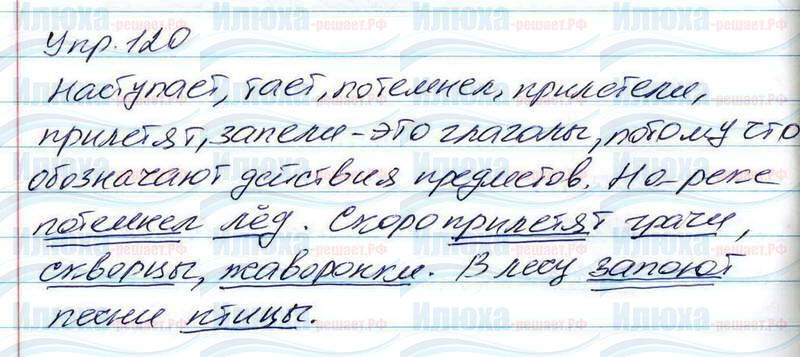 Упр. 120
Наступает, тает, потемнел, прилетели,
прилетят, запели – это глаголы, потому что
обозначают действия предметов. На реке
потемнел лёд. Скоро прилетят грачи,
скворцы, жаворонки. В лесу запоют
песни птицы.